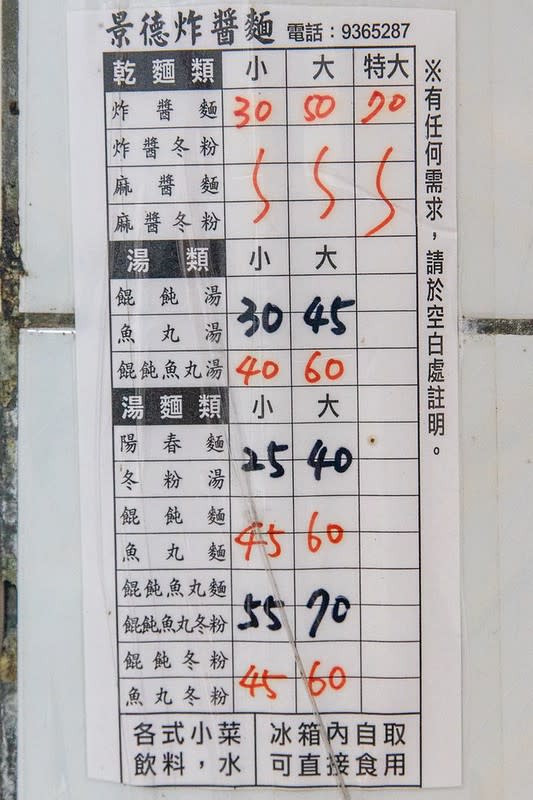 景德炸醬麵 電話：9365287
乾麵類 小 大 特大
炸醬麵 30 50 70
炸醬冬粉
麻醬麵
麻醬冬粉
湯類 小 大
餛飩湯
魚丸湯 30 45
餛飩魚丸湯 40 60
湯麵類 小 大
陽春麵
冬粉湯 25 40
餛飩麵
魚丸麵 45 60
餛飩魚丸麵
餛飩魚丸冬粉 55 70
餛飩冬粉
魚丸冬粉 45 60
各式小菜 冰箱內自取
飲料，水 可直接食用
※有任何需求，請於空白處註明。